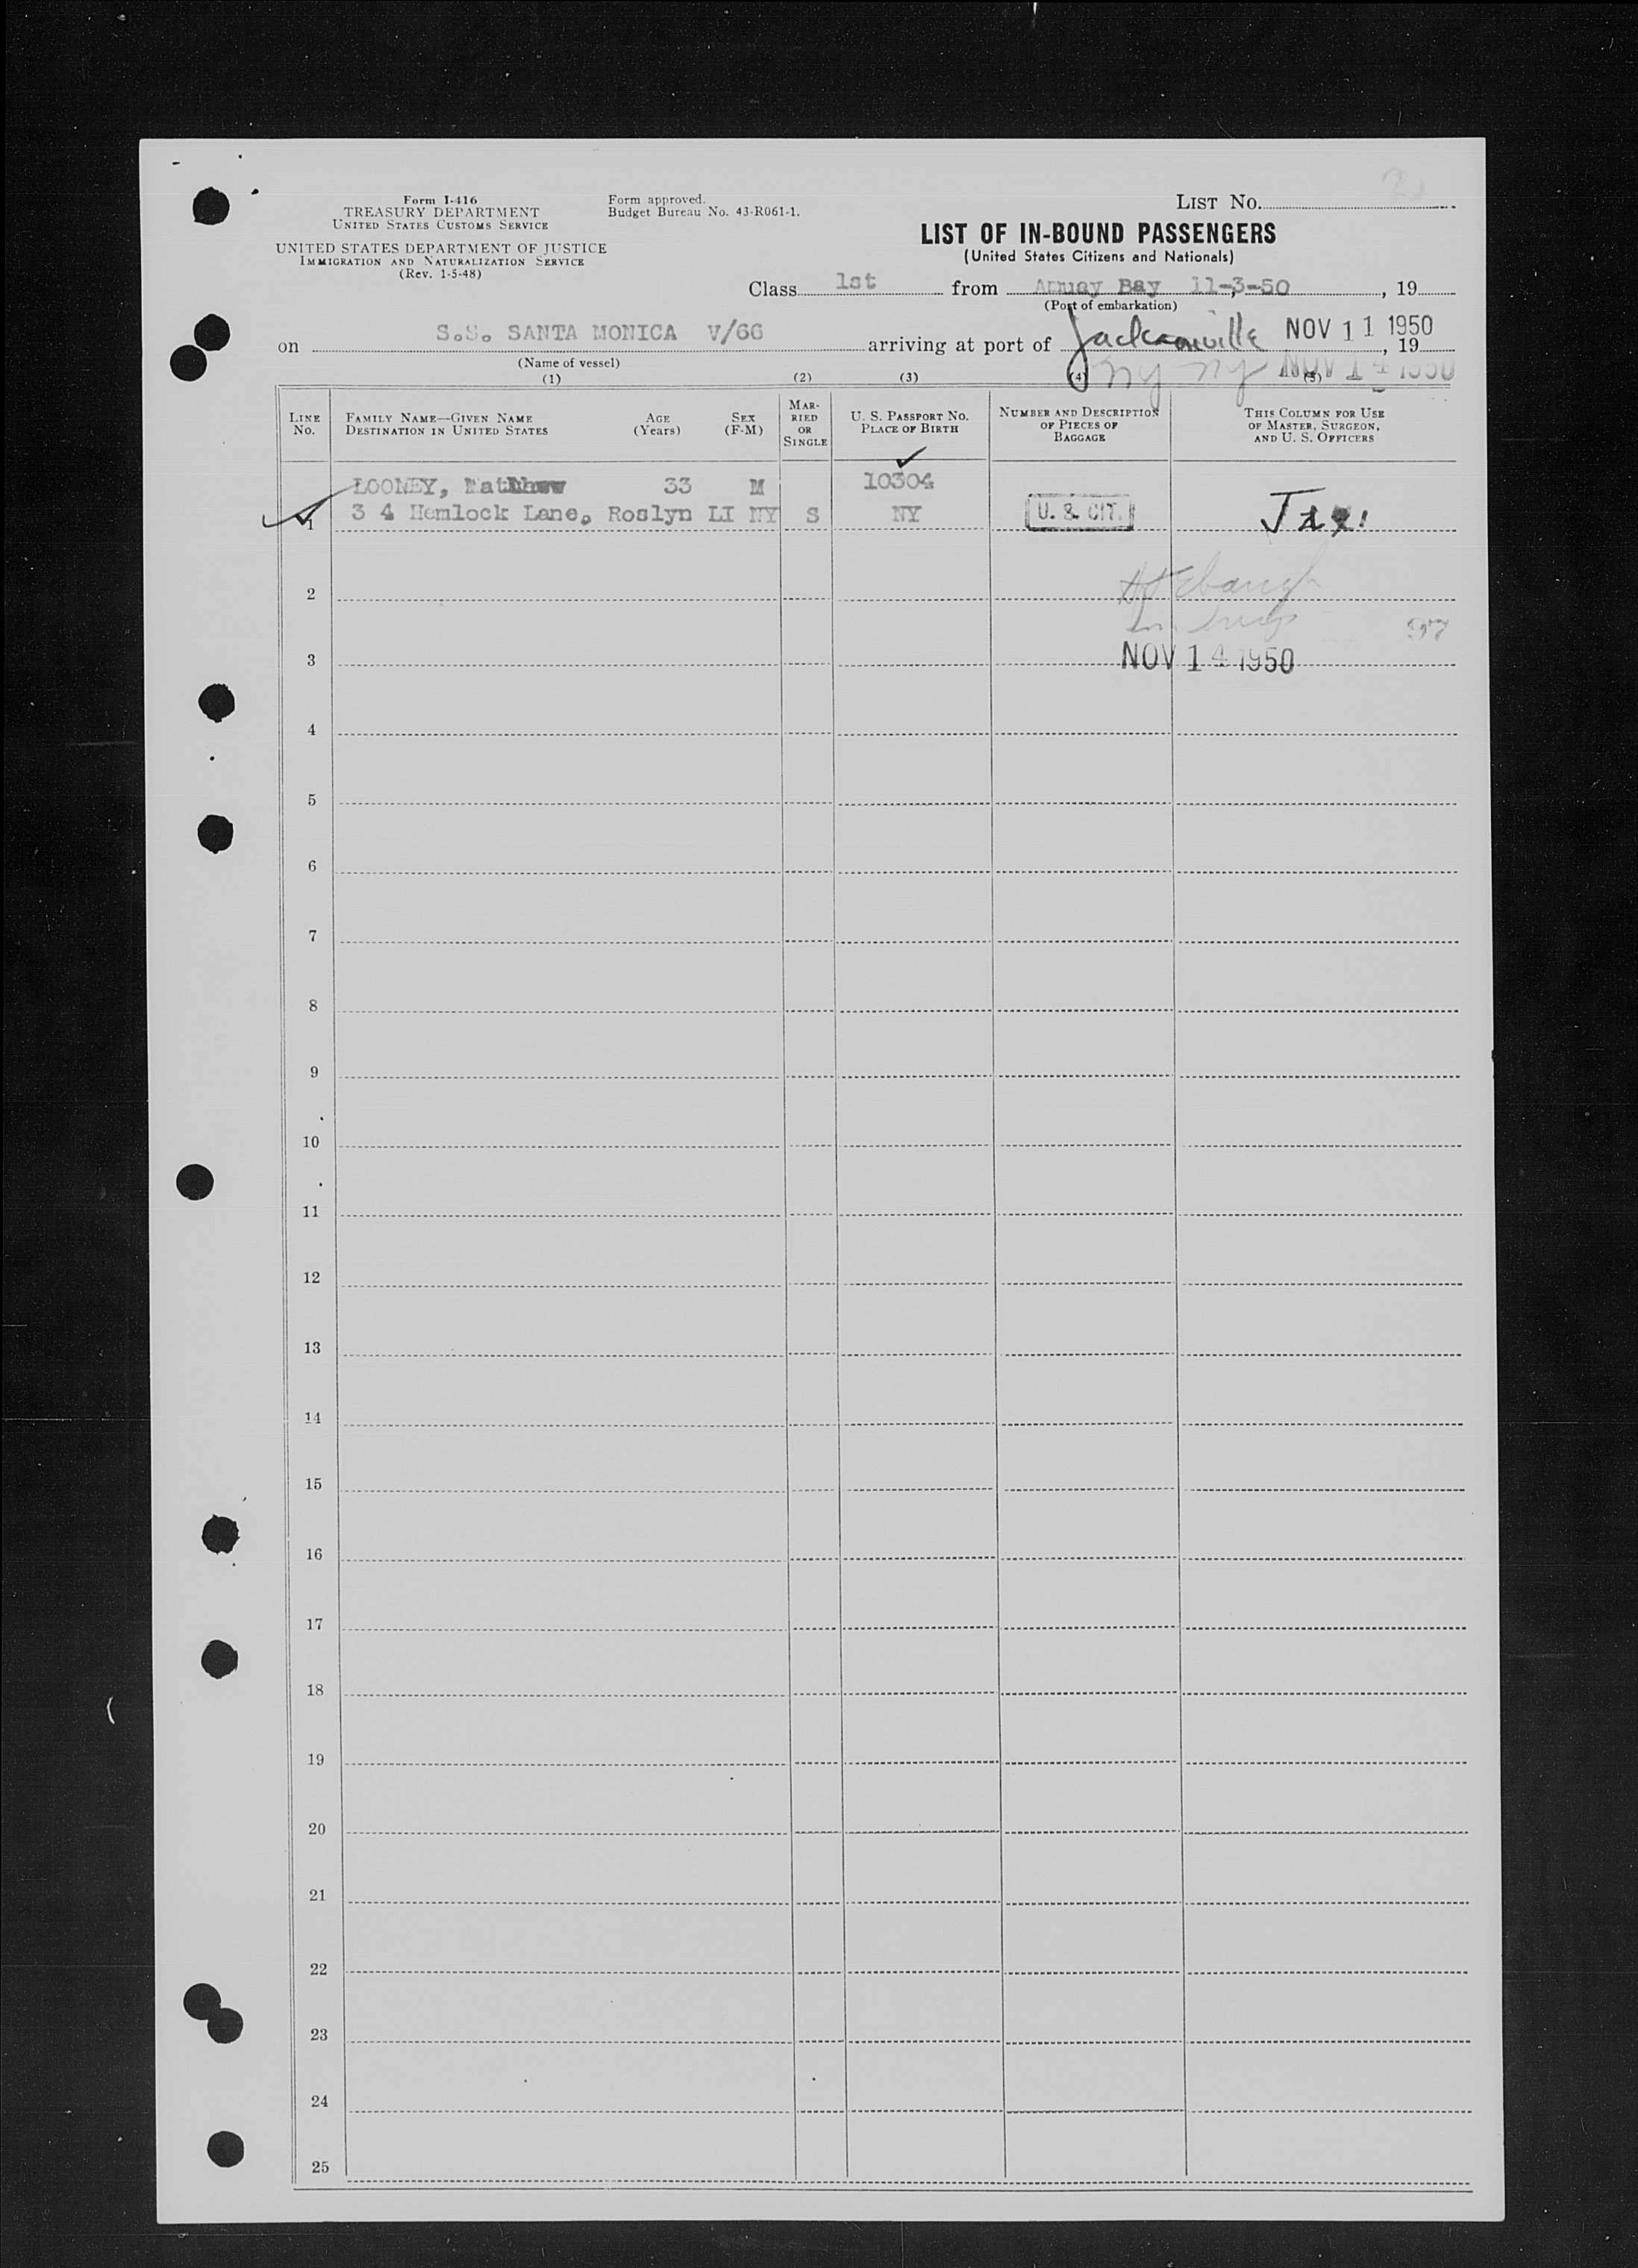 Form I-416
TREASURY DEPARTMENT
UNITED STATES CUSTOMS SERVICE
UNITED STATES DEPARTMENT OF JUSTICE
IMMIGRATION AND NATURALIZATION SERVICE
(Rev. 1-5-48)
Form approved.
Budget Bureau No. 43-R061-1.
LIST No.
LIST OF IN-BOUND PASSENGERS
(United States Citizens and Nationals)
Class 1st from Amuay Bay 11-3-50, 19
(Port of embarkation)
on S.S. SANTA MONICA V/66 arriving at port of Jacksonville NOV 11 1950, 19
(Name of vessel)
NY NY NOV 14 1950
(1) (2) (3) (4) (5)
LINE No.
FAMILY NAME—GIVEN NAME
DESTINATION IN UNITED STATES
AGE (Years)
SEX (F-M)
MAR-
RIED
OR
SINGLE
U. S. PASSPORT No.
PLACE OF BIRTH
NUMBER AND DESCRIPTION
OF PIECES OF
BAGGAGE
THIS COLUMN FOR USE
OF MASTER, SURGEON,
AND U. S. OFFICERS
LOONEY, Matthew 33 M 10304
1 3 4 Hemlock Lane, Roslyn LI NY S NY U. S. CIT. Jax.
2
97
3 NOV 14 1950
4
5
6
7
8
9
10
11
12
13
14
15
16
17
18
19
20
21
22
23
24
25